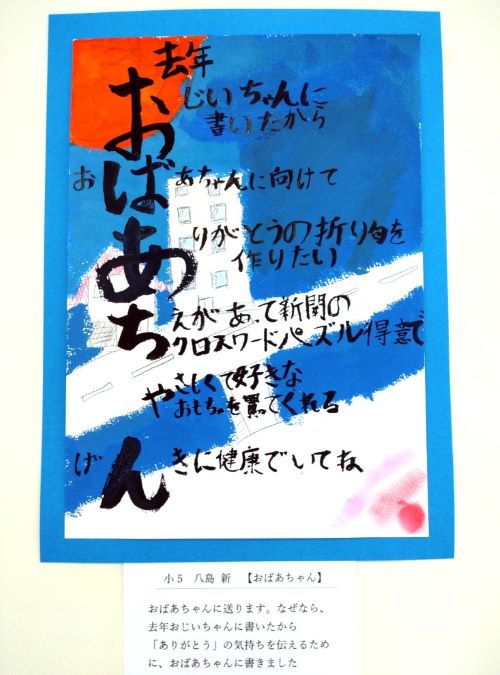 去年
おじいちゃんに
書いたから
おばあちゃんに向けて
ありがとうの折り句を
作りたい
ちえがあって新聞の
クロスワードパズル得意で
やさしくて好きな
おもちゃを買ってくれる
げんきに健康でいてね
小5 八島 新 【おばあちゃん】
おばあちゃんに送ります。なぜなら、
去年おじいちゃんに書いたから
「ありがとう」の気持ちを伝えるため
に、おばあちゃんに書きました